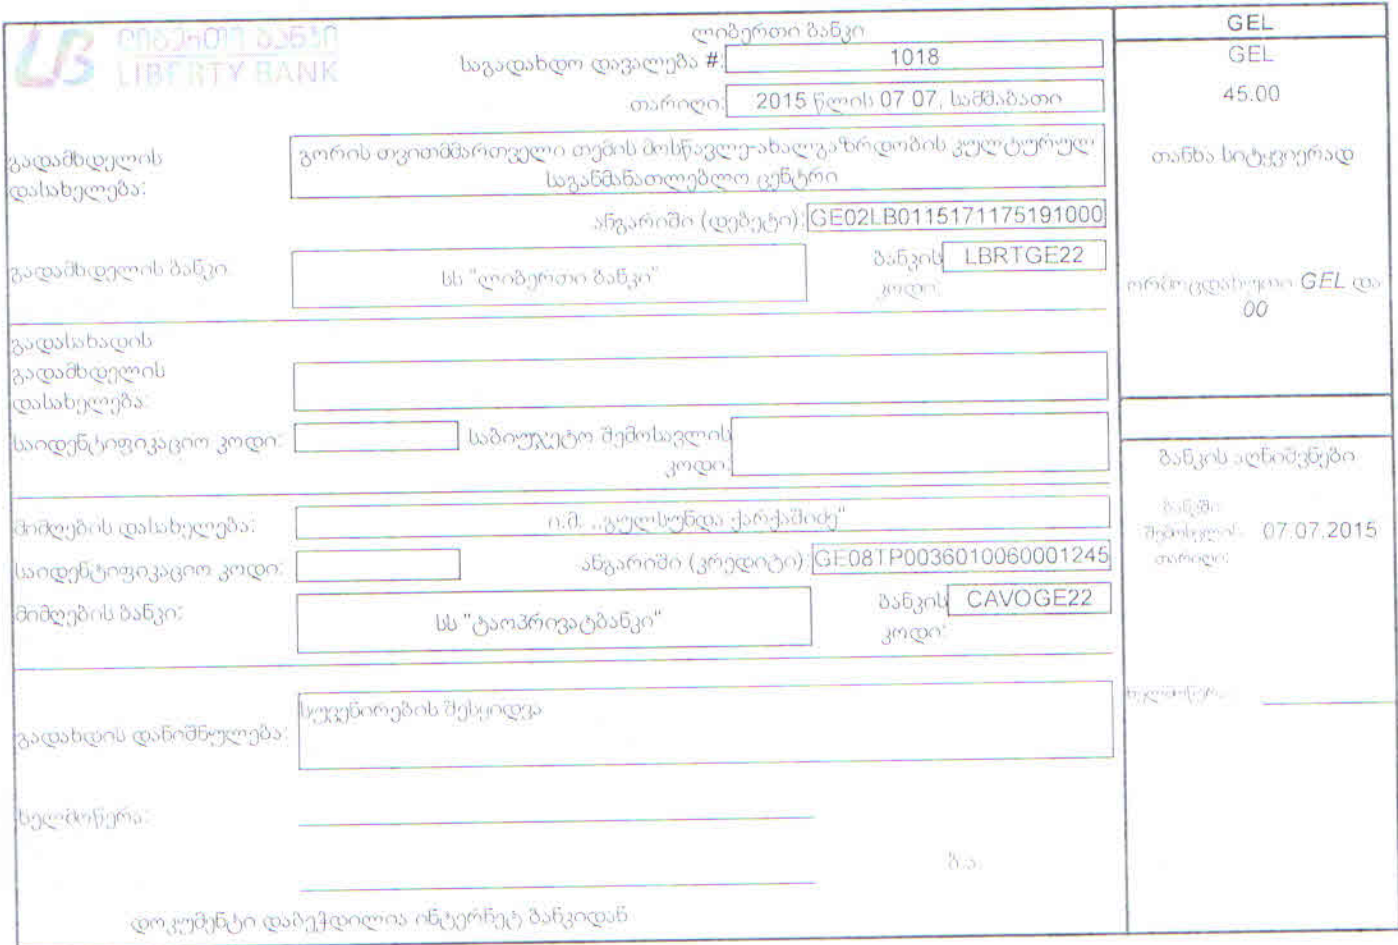 ლიბერთი ბანკი
LIBERTY BANK
ლიბერთი ბანკი
საგადახდო დავალება #: 1018
თარიღი: 2015 წლის 07 07, სამშაბათი
გადამხდელის დასახელება:
გორის თვითმმართველი თემის მოსწავლე-ახალგაზრდობის კულტურულ
საგანმანათლებლო ცენტრი
ანგარიში (დებეტი): GE02LB0115171175191000
გადამხდელის ბანკი
სს "ლიბერთი ბანკი"
ბანკის კოდი: LBRTGE22
გადასახადის
გადამხდელის
დასახელება:
საიდენტიფიკაციო კოდი:
საბიუჯეტო შემოსავლის
კოდი:
მიმღების დასახელება: ი.მ. ,,გულსუნდა ქარქაშიძე"
საიდენტიფიკაციო კოდი:
ანგარიში (კრედიტი): GE08TP0036010060001245
მიმღების ბანკი:
სს "ტაოპრივატბანკი"
ბანკის კოდი: CAVOGE22
გადახდის დანიშნულება:
სუვენირების შესყიდვა
ხელმოწერა:
ბ.ა.
დოკუმენტი დაბეჭდილია ინტერნეტ ბანკიდან
GEL
GEL
45.00
თანხა სიტყვიერად
ორმოცდახუთი GEL და
00
ბანკის აღნიშვნები
ბანკში
შემოსვლის 07.07.2015
თარიღი:
ხელმოწერა: